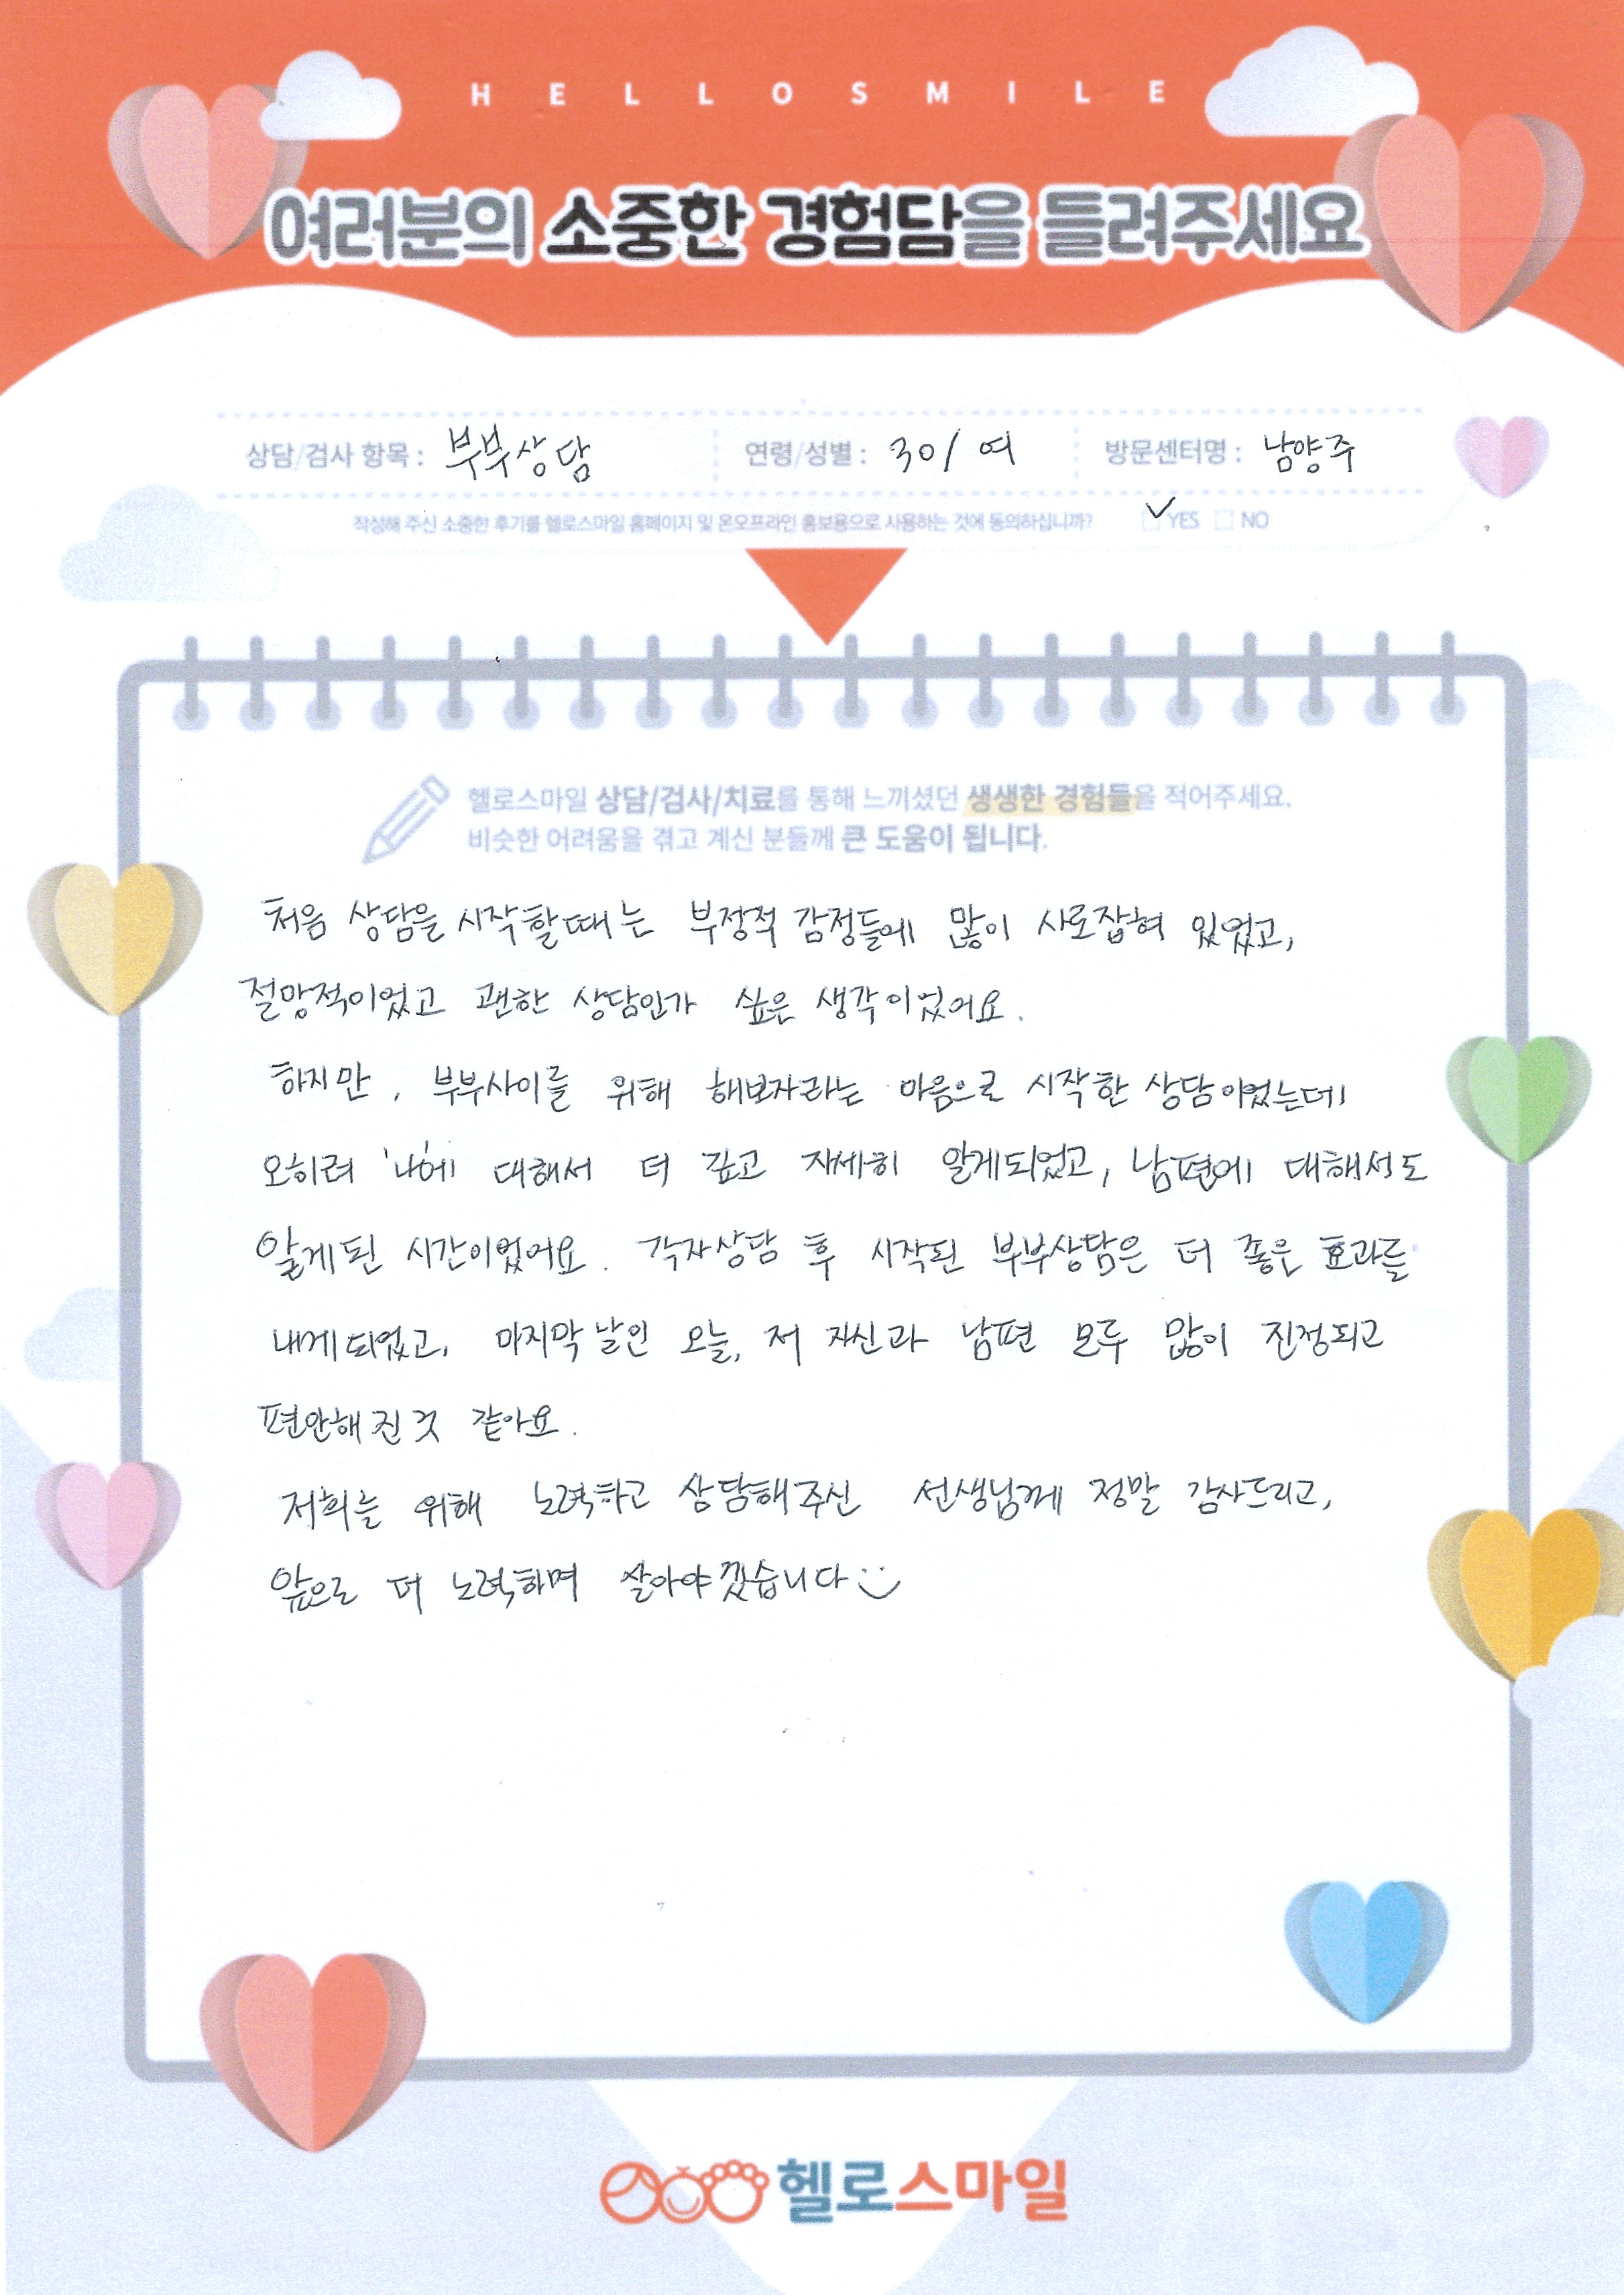 HELLOSMILE
여러분의 소중한 경험담을 들려주세요
상담/검사 항목 : 부부상담 연령/성별 : 30 / 여 방문센터명 : 남양주
작성해 주신 소중한 후기를 헬로스마일 홈페이지 및 온오프라인 홍보용으로 사용하는 것에 동의하십니까? YES NO
헬로스마일 상담/검사/치료를 통해 느끼셨던 생생한 경험들을 적어주세요.
비슷한 어려움을 겪고 계신 분들께 큰 도움이 됩니다.
처음 상담을 시작할때는 부정적 감정들에 많이 사로잡혀 있었고,
절망적이었고 괜한 상담인가 싶은 생각이었어요.
하지만, 부부사이를 위해 해보자라는 마음으로 시작한 상담이었는데
오히려 '나'에 대해서 더 깊고 자세히 알게되었고, 남편에 대해서도
알게된 시간이었어요. 각자상담 후 시작된 부부상담은 더 좋은 효과를
내게되었고, 마지막날인 오늘, 저 자신과 남편 모두 많이 진정되고
편안해진것 같아요.
저희를 위해 노력하고 상담해주신 선생님께 정말 감사드리고,
앞으로 더 노력하며 살아야겠습니다
헬로스마일